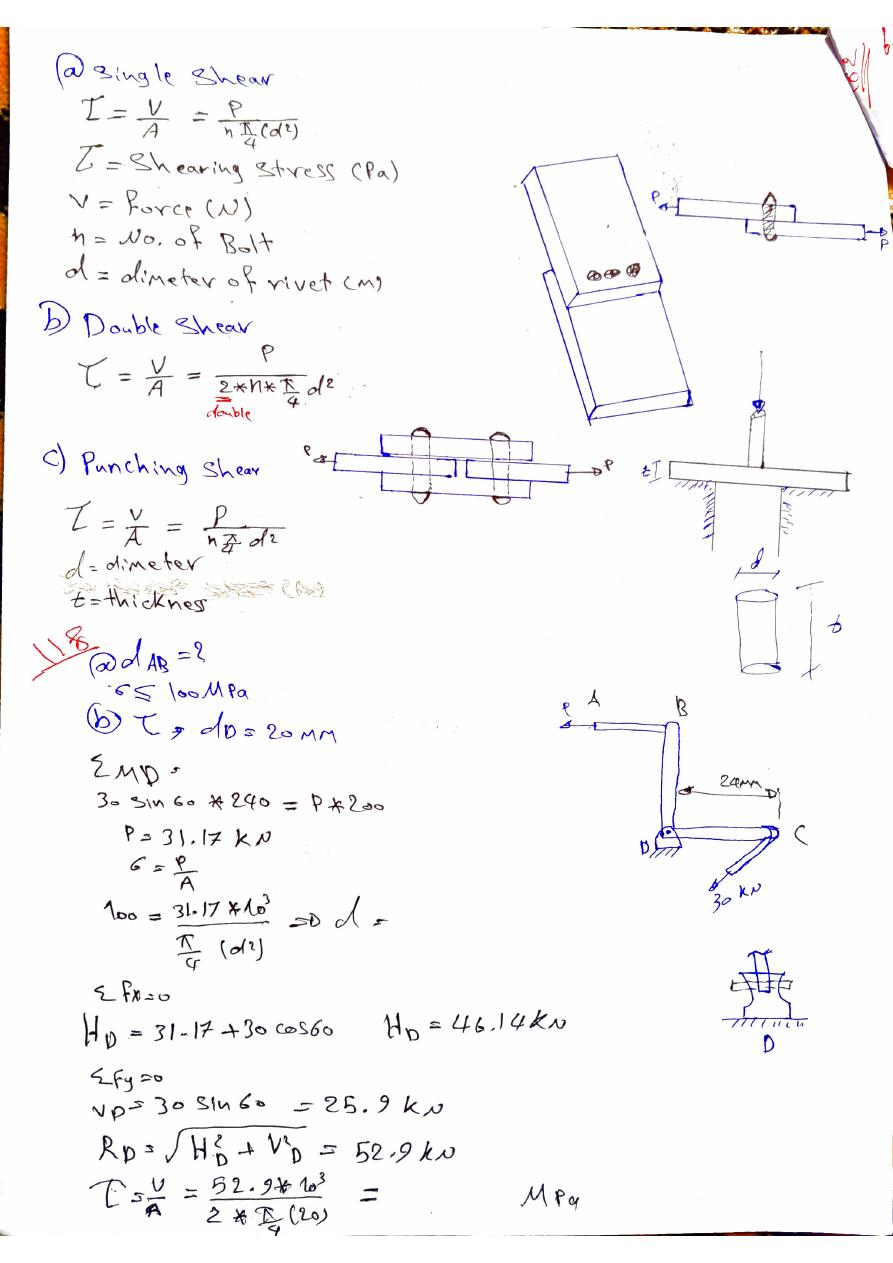 (a) Single Shear
τ = V/A = P / (n π/4 (d²))
τ = Shearing Stress (Pa)
V = Force (N)
n = No. of Bolt
d = dimeter of rivet (m)
b) Double Shear
τ = V/A = P / (2*n*π/4 d²)
double
c) Punching Shear
τ = V/A = P / (n π/4 d²)
d = dimeter
t = thickness
P
P
P
P
t
d
t
118
(a) d AB = ?
σ ≤ 100 MPa
(b) τ , dD = 20 MM
ΣMD =
30 sin 60 * 240 = P * 200
P = 31.17 kN
σ = P/A
100 = 31.17 * 10³ / (π/4 (d²)) ⇒ d =
Σfx = 0
HD = 31.17 + 30 cos60 HD = 46.14 kN
ΣFy = 0
VD = 30 sin 60 = 25.9 kN
RD = √(H²D + V²D) = 52.9 kN
τ = V/A = 52.9 * 10³ / (2 * π/4 (20)) = MPa
P
A
B
24mm
D
C
30 kN
D